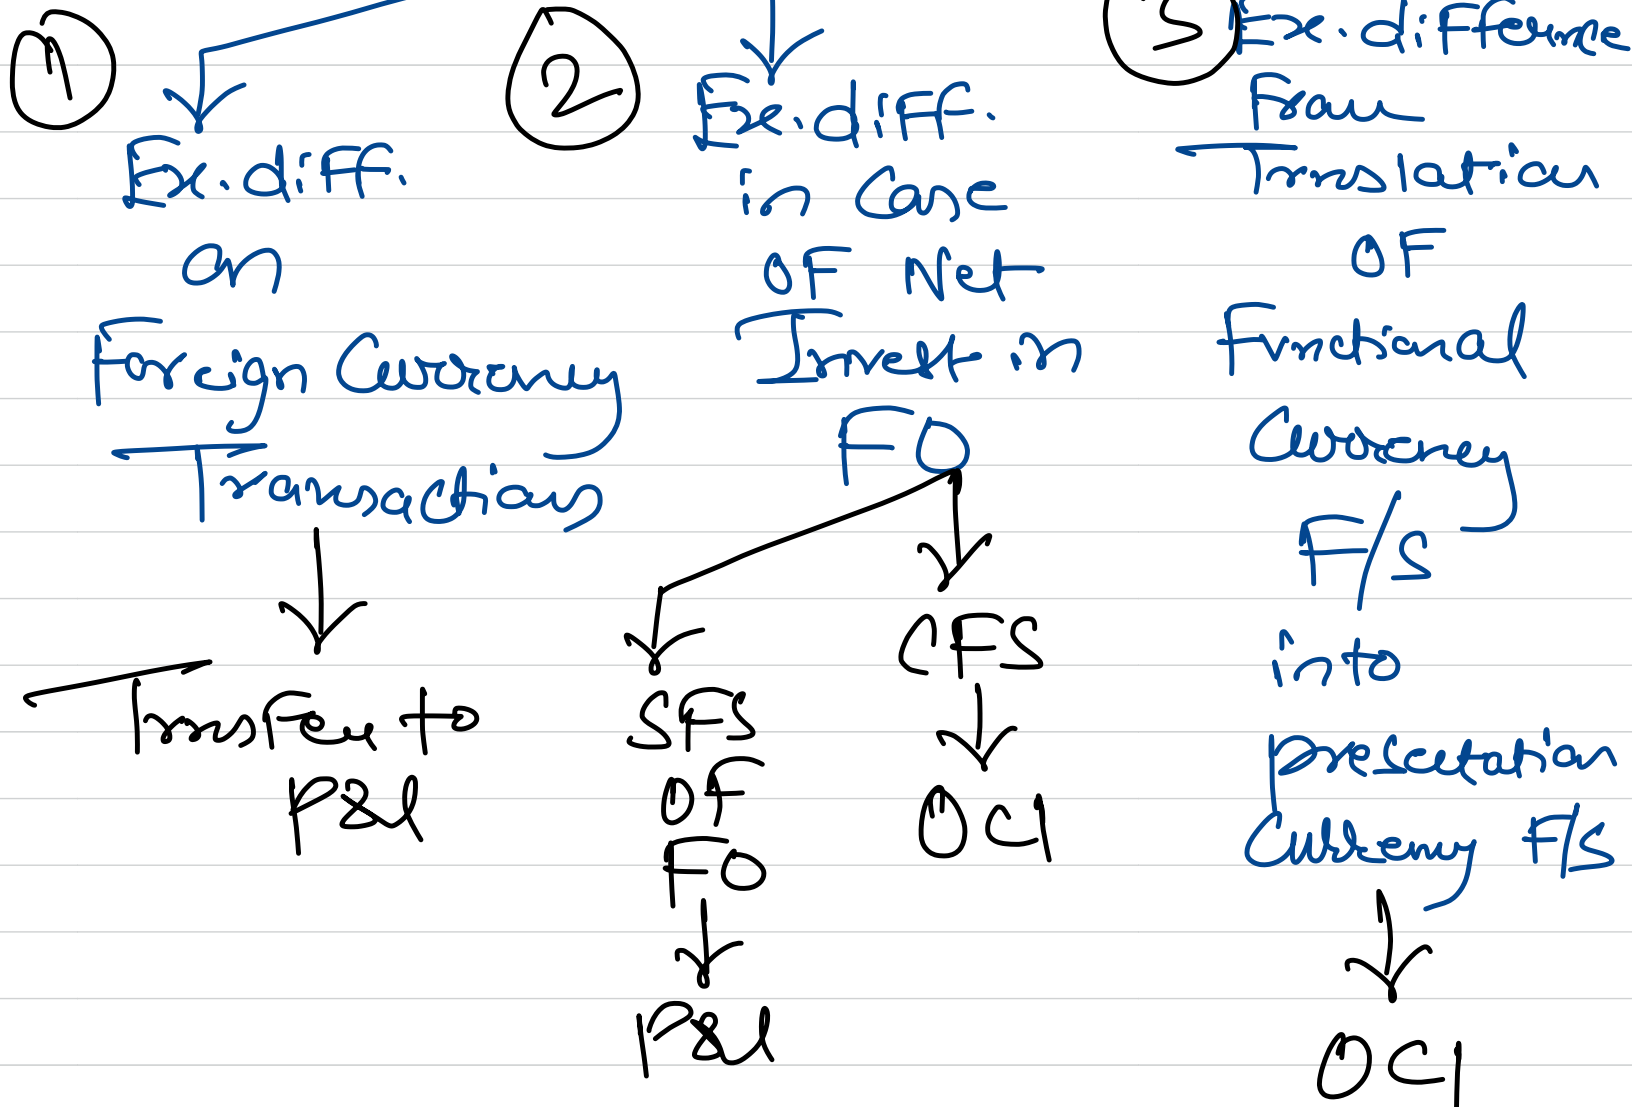 ①
Ex. diff.
on
Foreign Currency
Transactions
Transfer to
P&L
②
Ex. diff.
in Case
OF Net
Invest in
FO
SFS
OF
FO
P&L
CFS
OCI
③
Ex. difference
From
Translation
OF
Functional
Currency
F/S
into
presentation
Currency F/S
OCI